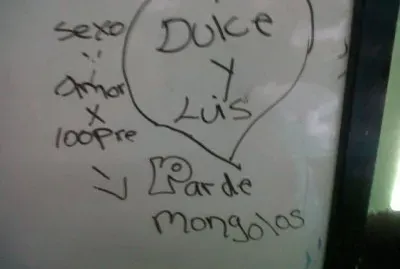 sexo
Amor
x
100pre
Dulce
y
Luis
Par de
mongolos